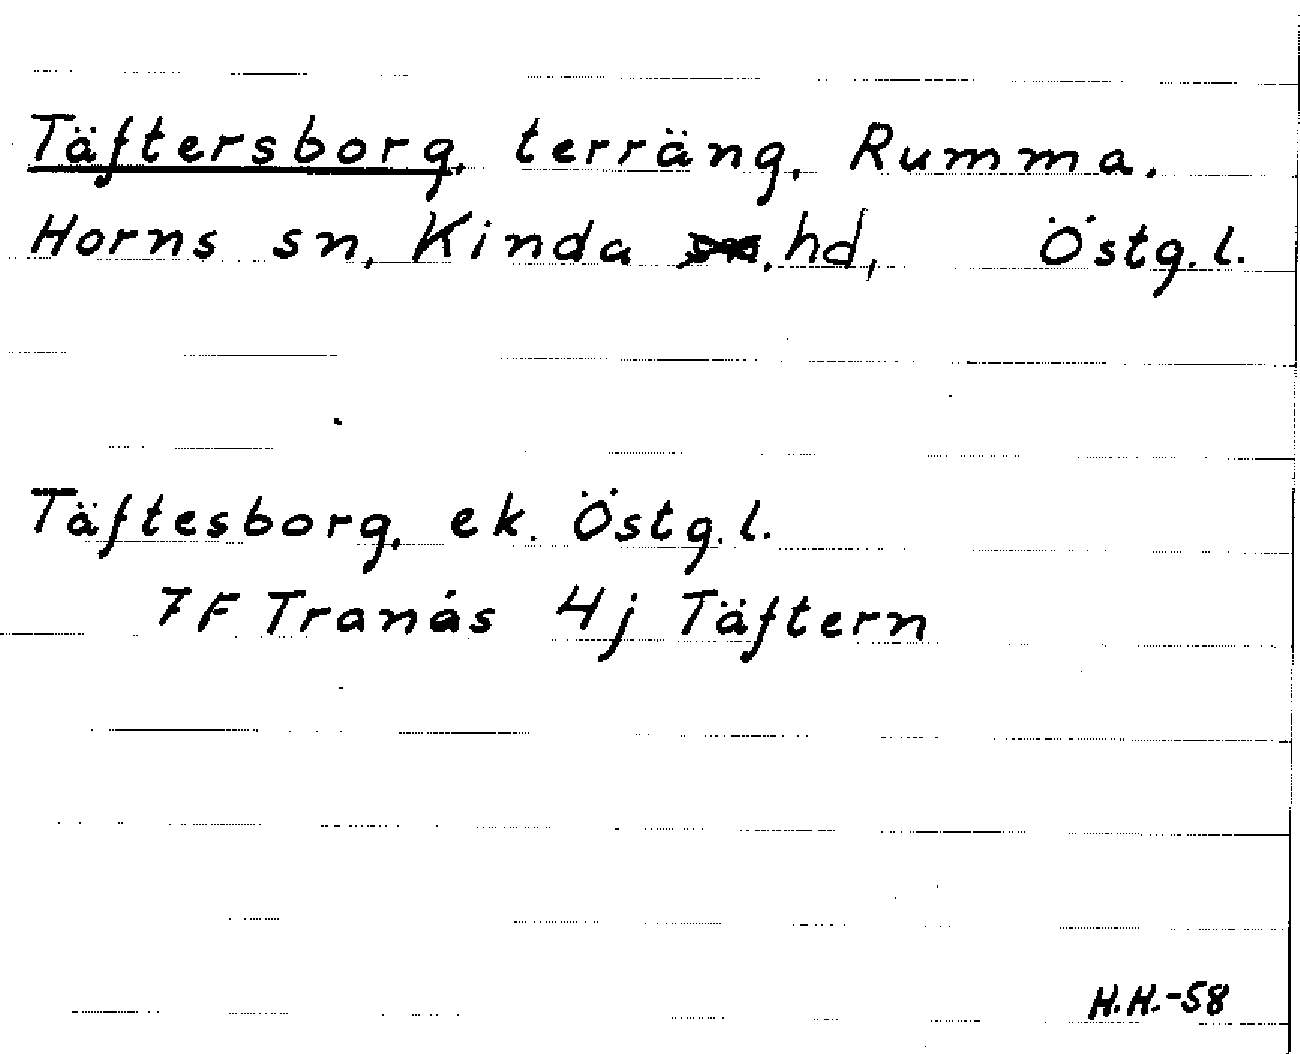 Täftersborg, terräng, Rumma.
Horns sn, Kinda hd, Östg.l.
Täftesborg, ek. Östg.l.
7F Tranås 4j Täftern
H.H.-58